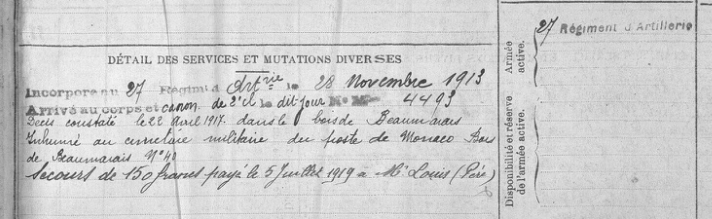 DÉTAIL DES SERVICES ET MUTATIONS DIVERSES
Incorporé au 27 Régiment d'Artrie le 28 Novembre 1913
Arrivé au corps et canon. de 2e cl le dit jour No Mle 4493
Décès constaté le 22 avril 1917. dans le bois de Beaumarais
Inhumé au cimetière militaire du poste de Monaco Bois
de Beaumarais No 40
Secours de 150 francs payé le 5 Juillet 1919 à Mr Louis (Père)
27 Régiment d'Artillerie
Armée
active.
Disponibilité et réserve
de l'armée active.